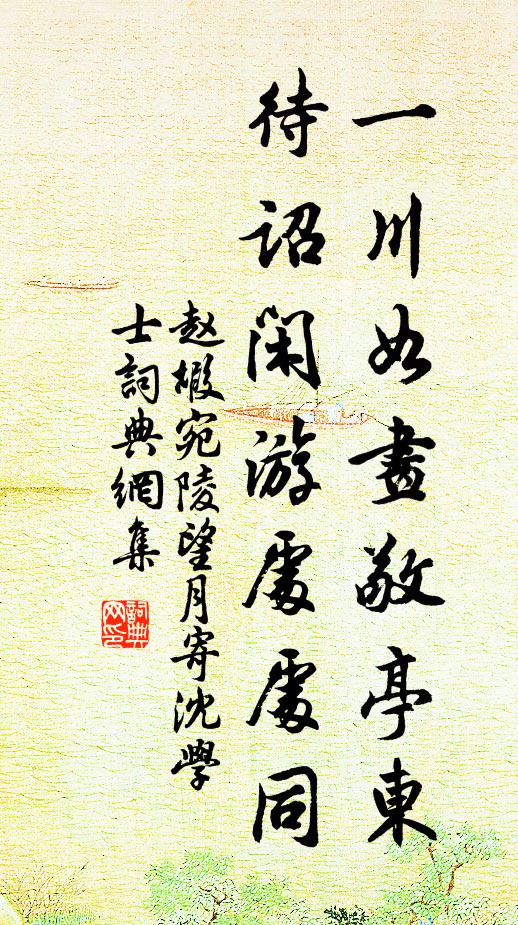 一川如畫敬亭東
待詔閑游處處同
赵椵宛陵望月寄沈學
士詞典網集
詞典网印